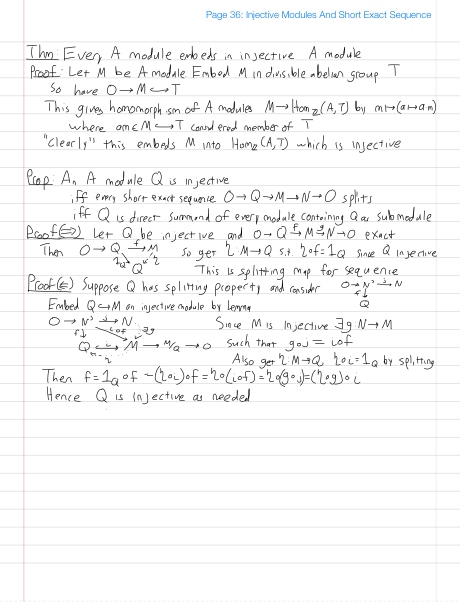 Page 36: Injective Modules And Short Exact Sequence
Thm: Every A module embeds in injective A module
Proof: Let M be A module Embed M in divisible abelian group T
So have 0→M↪T
This gives homomorphism of A modules M→Hom_ℤ(A,T) by m↦(a↦am)
where am∈M↪T considered member of T
"Clearly" this embeds M into Hom_ℤ(A,T) which is injective
Prop: An A module Q is injective
iff every short exact sequence 0→Q→M→N→0 splits
iff Q is direct summand of every module containing Q as submodule
Proof(⇒) Let Q be injective and 0→Q→M→N→0 exact
Then 0→Q→M so get η: M→Q s.t. η∘f=1_Q since Q injective
1_Q Q η This is splitting map for sequence
Proof(⇐) Suppose Q has splitting property and consider 0→N'→N
f↓ Q
Embed Q↪M an injective module by lemma
0→N'→N Since M is injective ∃g: N→M
f↓ i∘f ∃g
Q→M→M/Q→0 such that g∘j = i∘f
η Also get η: M→Q, η∘i=1_Q by splitting
Then f=1_Q∘f=(η∘i)∘f=η∘(i∘f)=η∘(g∘j)=(η∘g)∘i
Hence Q is injective as needed